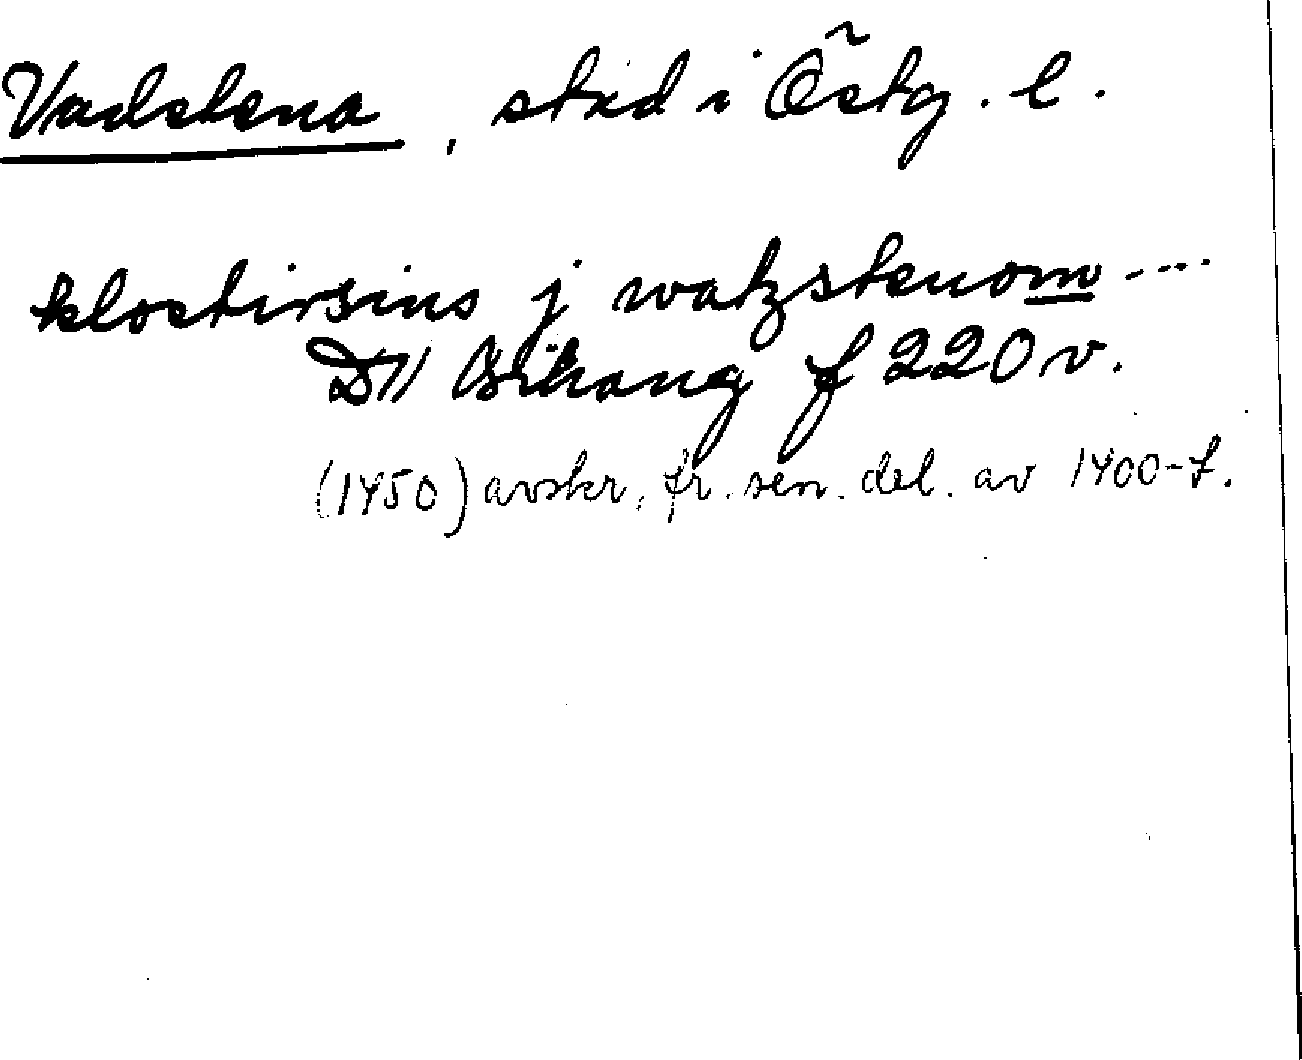 Vadstena, stad i Östg. l.
klostirsins j watzstenom ----
D 11 Bihang f 220 v.
(1450) avskr. fr. sen. del. av 1400-t.